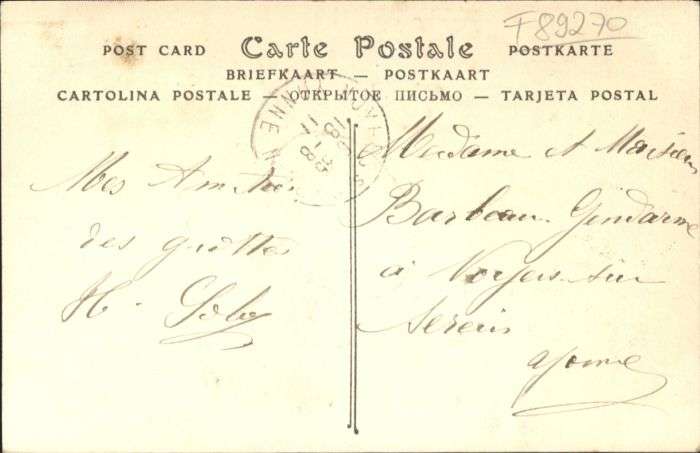 F89270
POST CARD Carte Postale POSTKARTE
BRIEFKAART — POSTKAART
CARTOLINA POSTALE — ОТКРЫТОЕ ПИСЬМО — TARJETA POSTAL
Mes Amitiés
des grottes
H.
Madame et Monsieur
Barbeau Gendarme
à Noyers sur
Serein
Yonne